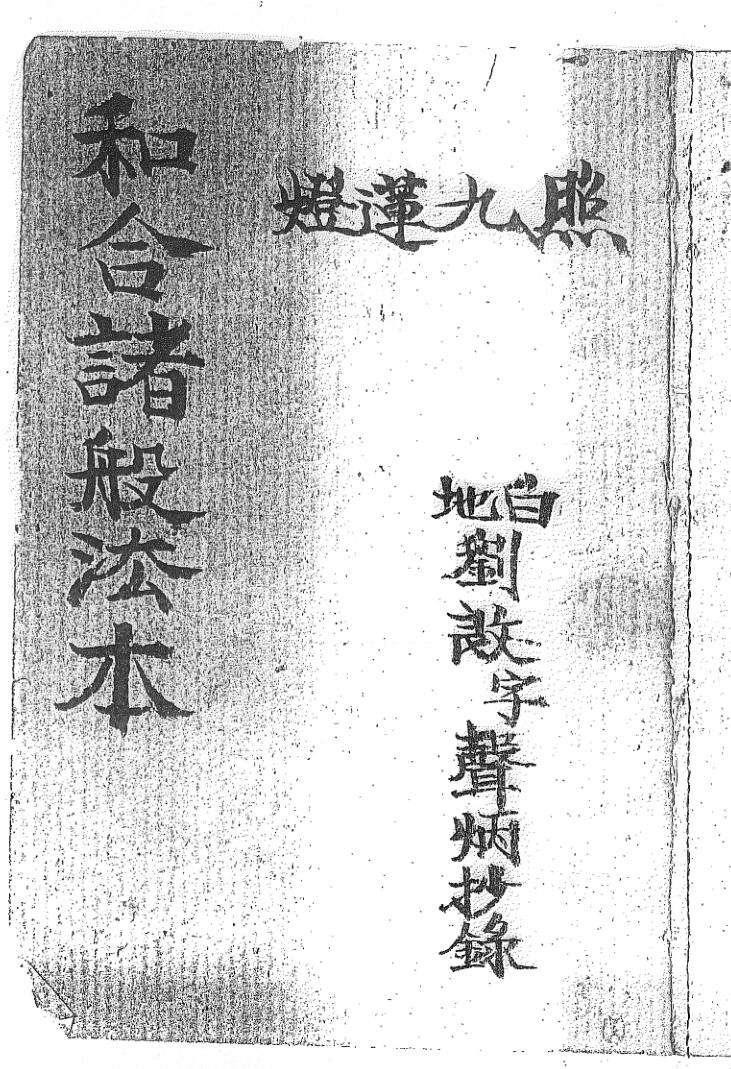 照九蓮燈
白地
劉字聲炳抄錄
和合諸般法本